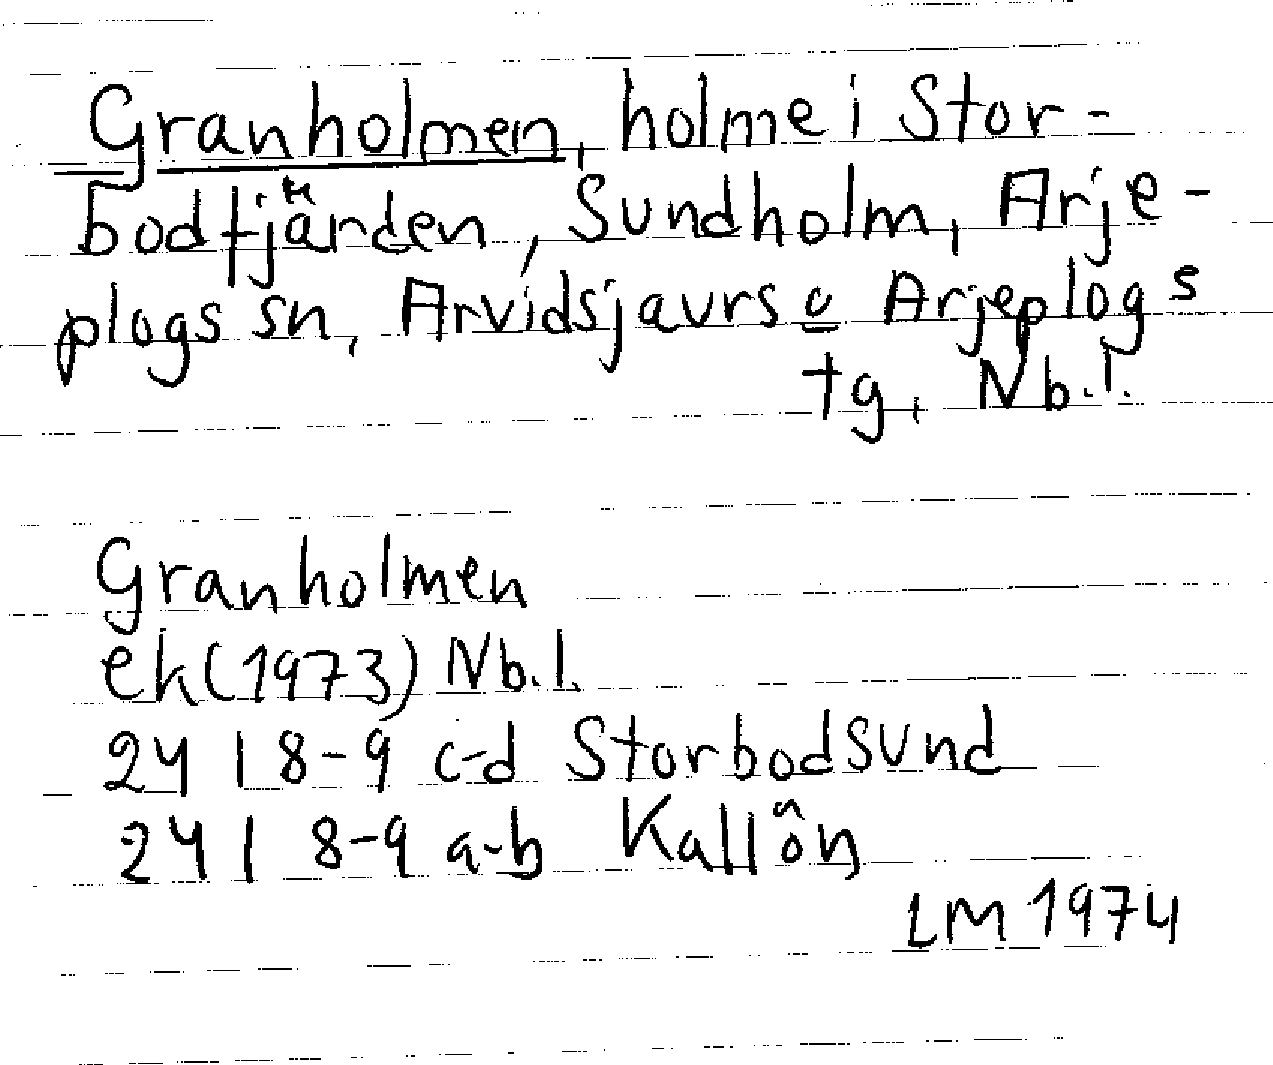 Granholmen, holme i Stor-
bodfjärden, Sundholm, Arje-
plogs sn, Arvidsjaurs o Arjeplogs
tg, Nb.l.
Granholmen
ek (1973) Nb.l.
24 I 8-9 c-d Storbodsund
24 I 8-9 a-b Kallön
LM 1974